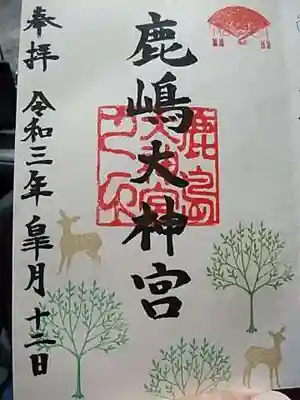 鹿嶋大神宮
鹿島
大神宮
之印
奉拝 令和三年皐月十二日